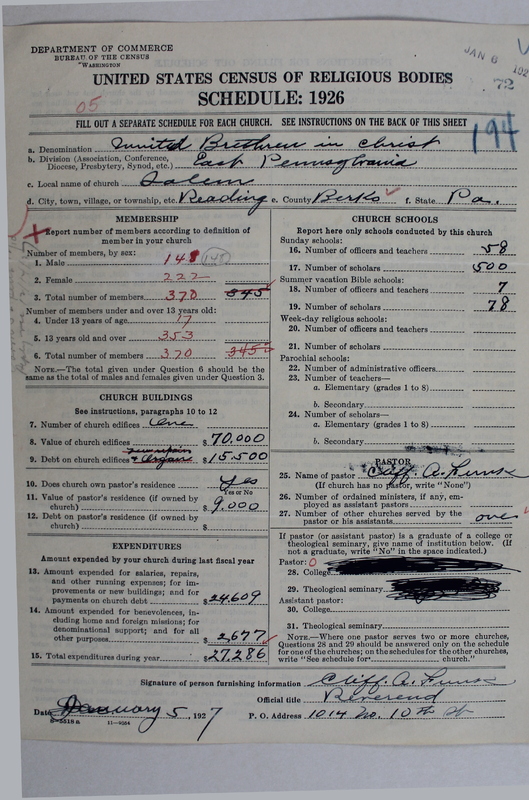 DEPARTMENT OF COMMERCE
BUREAU OF THE CENSUS
WASHINGTON
JAN 6 192
72
UNITED STATES CENSUS OF RELIGIOUS BODIES
SCHEDULE: 1926
05
FILL OUT A SEPARATE SCHEDULE FOR EACH CHURCH. SEE INSTRUCTIONS ON THE BACK OF THIS SHEET
194
a. Denomination United Brethren in Christ
b. Division (Association, Conference, Diocese, Presbytery, Synod, etc.) East Pennsylvania
c. Local name of church Salem
d. City, town, village, or township, etc. Reading e. County Berks f. State Pa.
MEMBERSHIP
Report number of members according to definition of
member in your church
Number of members, by sex:
1. Male 148
2. Female 222
3. Total number of members 370 345
Number of members under and over 13 years old:
4. Under 13 years of age 17
5. 13 years old and over 353
6. Total number of members 370 345
NOTE.—The total given under Question 6 should be the
same as the total of males and females given under Question 3.
CHURCH BUILDINGS
See instructions, paragraphs 10 to 12
7. Number of church edifices One
8. Value of church edifices $70,000
9. Debt on church edifices & Organ $15,500
10. Does church own pastor's residence? Yes
Yes or No
11. Value of pastor's residence (if owned by
church) $9,000
12. Debt on pastor's residence (if owned by
church) $
EXPENDITURES
Amount expended by your church during last fiscal year
13. Amount expended for salaries, repairs,
and other running expenses; for im-
provements or new buildings; and for
payments on church debt $24,609
14. Amount expended for benevolences, in-
cluding home and foreign missions; for
denominational support; and for all
other purposes $2,677
15. Total expenditures during year $27,286
CHURCH SCHOOLS
Report here only schools conducted by this church
Sunday schools:
16. Number of officers and teachers 58
17. Number of scholars 500
Summer vacation Bible schools:
18. Number of officers and teachers 7
19. Number of scholars 78
Week-day religious schools:
20. Number of officers and teachers
21. Number of scholars
Parochial schools:
22. Number of administrative officers
23. Number of teachers—
a. Elementary (grades 1 to 8)
b. Secondary
24. Number of scholars—
a. Elementary (grades 1 to 8)
b. Secondary
PASTOR
25. Name of pastor Cliff. A.
(If church has no pastor, write "None")
26. Number of ordained ministers, if any, em-
ployed as assistant pastors
27. Number of other churches served by the
pastor or his assistants one
If pastor (or assistant pastor) is a graduate of a college or
theological seminary, give name of institution below. (If
not a graduate, write "No" in the space indicated.)
Pastor: 0
28. College
29. Theological seminary
Assistant pastor:
30. College
31. Theological seminary
NOTE.—Where one pastor serves two or more churches,
Questions 28 and 29 should be answered only on the schedule
for one of the churches; on the schedules for the other churches,
write "See schedule for church."
Signature of person furnishing information Cliff. A.
Official title Reverend
Date January 5, 1927 P. O. Address 1014 No. 10th St
8-2518a 11-9564